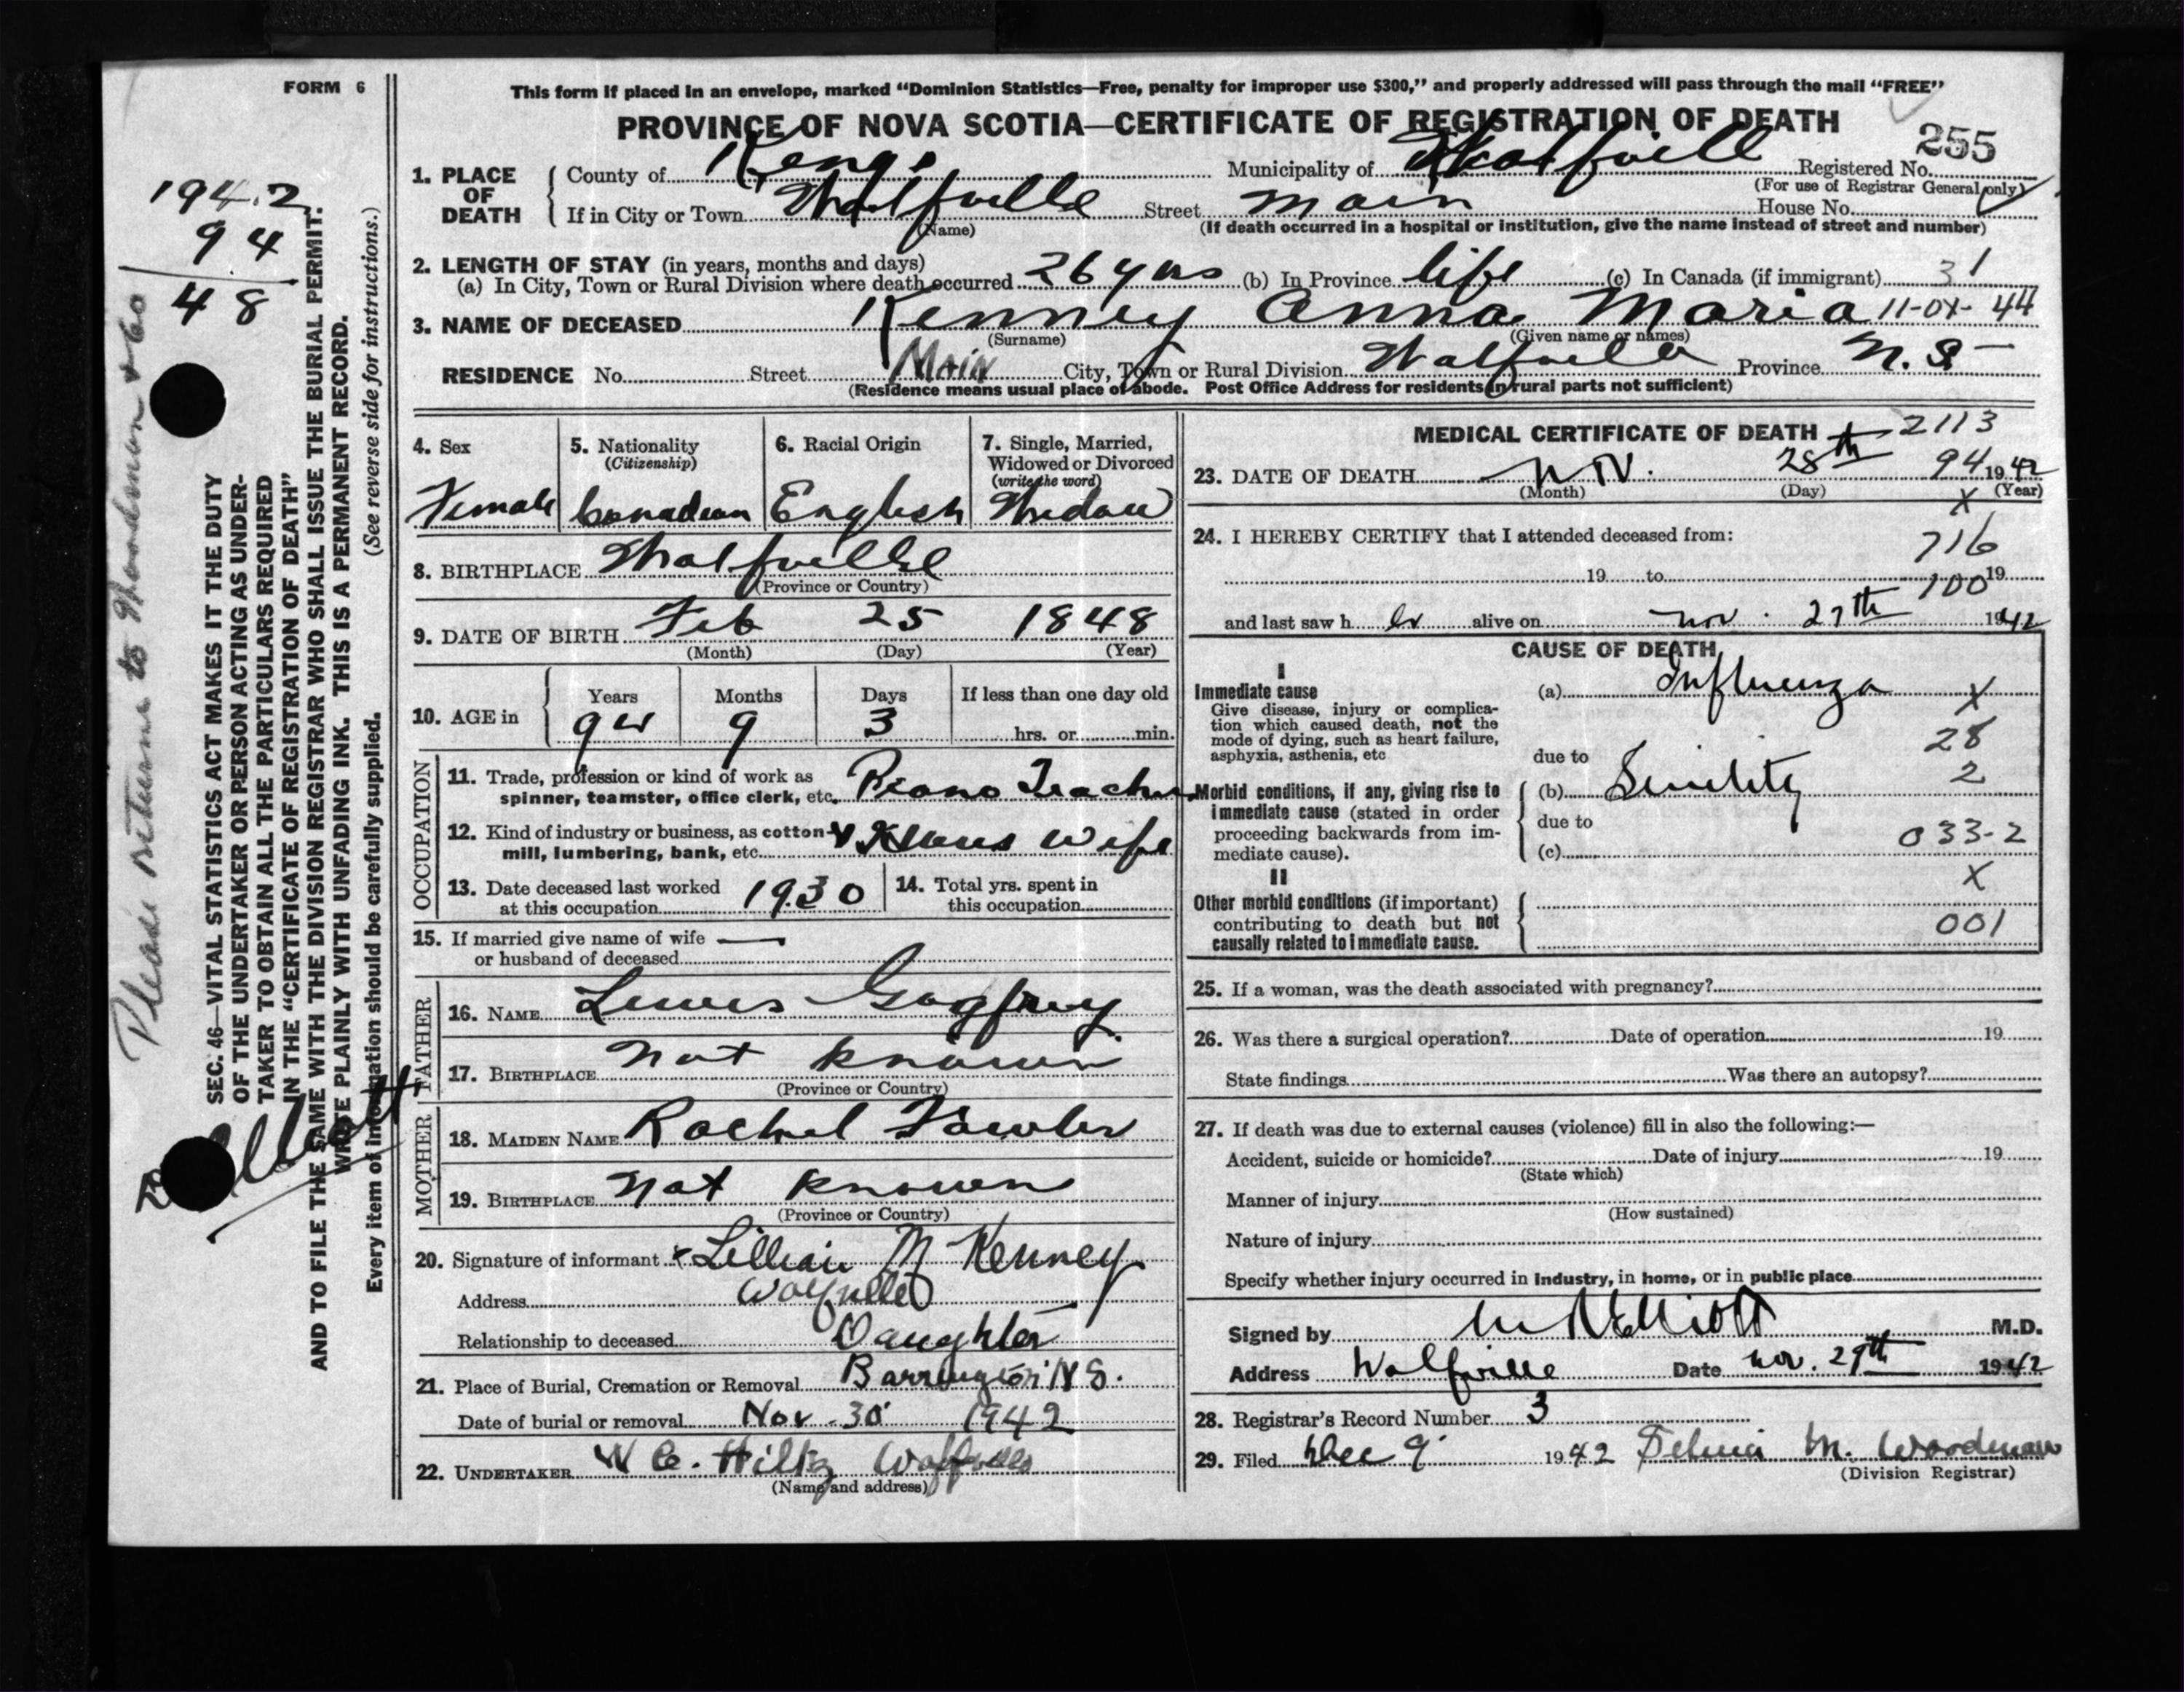 FORM 6
This form if placed in an envelope, marked “Dominion Statistics—Free, penalty for improper use $300,” and properly addressed will pass through the mail “FREE”
PROVINCE OF NOVA SCOTIA—CERTIFICATE OF REGISTRATION OF DEATH
255
1. PLACE OF DEATH County of Kings Municipality of Wolfvill Registered No.
(For use of Registrar General only)
If in City or Town Wolfville Street Main House No.
(Name) (If death occurred in a hospital or institution, give the name instead of street and number)
2. LENGTH OF STAY (in years, months and days)
(a) In City, Town or Rural Division where death occurred 26 yrs (b) In Province life (c) In Canada (if immigrant) 31
3. NAME OF DECEASED Kenney Anna Maria 11-01-44
(Surname) (Given name or names)
RESIDENCE No. Street Main City, Town or Rural Division Wolfville Province N.S
(Residence means usual place of abode. Post Office Address for residents in rural parts not sufficient)
4. Sex
Female
5. Nationality
(Citizenship)
Canadian
6. Racial Origin
English
7. Single, Married,
Widowed or Divorced
(write the word)
Widow
8. BIRTHPLACE Wolfville
(Province or Country)
9. DATE OF BIRTH Feb 25 1848
(Month) (Day) (Year)
10. AGE in Years Months Days If less than one day old
94 9 3 hrs. or min.
OCCUPATION
11. Trade, profession or kind of work as
spinner, teamster, office clerk, etc. Piano Teacher
12. Kind of industry or business, as cotton-
mill, lumbering, bank, etc. House Wife
13. Date deceased last worked
at this occupation 1930
14. Total yrs. spent in
this occupation
15. If married give name of wife —
or husband of deceased
FATHER
16. NAME Lewis
17. BIRTHPLACE not known
(Province or Country)
MOTHER
18. MAIDEN NAME Rachel
19. BIRTHPLACE not known
(Province or Country)
20. Signature of informant x Lillian M Kenney
Address Wolfville
Relationship to deceased Daughter
21. Place of Burial, Cremation or Removal Barrington N S.
Date of burial or removal Nov. 30 1942
22. UNDERTAKER Hiltz Wolfville
(Name and address)
MEDICAL CERTIFICATE OF DEATH 2113
23. DATE OF DEATH Nov. 28th 94 1942
(Month) (Day) (Year)
X
24. I HEREBY CERTIFY that I attended deceased from:
716
19 to 19
100
and last saw h er alive on Nov. 27th 1942
CAUSE OF DEATH
I
Immediate cause (a) Influenza X
Give disease, injury or complica-
tion which caused death, not the
mode of dying, such as heart failure,
asphyxia, asthenia, etc
28
due to
2
Morbid conditions, if any, giving rise to
immediate cause (stated in order
proceeding backwards from im-
mediate cause).
(b) Senility
due to
(c) 033-2
X
II
Other morbid conditions (if important)
contributing to death but not
causally related to immediate cause.
001
25. If a woman, was the death associated with pregnancy?
26. Was there a surgical operation? Date of operation 19
State findings Was there an autopsy?
27. If death was due to external causes (violence) fill in also the following:—
Accident, suicide or homicide? Date of injury 19
(State which)
Manner of injury
(How sustained)
Nature of injury
Specify whether injury occurred in industry, in home, or in public place
Signed by Elliott M.D.
Address Wolfville Date Nov. 29th 1942
28. Registrar's Record Number 3
29. Filed Dec 9 1942 M. Woodman
(Division Registrar)
1942
94
48
Please return to Woodman
SEC. 46—VITAL STATISTICS ACT MAKES IT THE DUTY
OF THE UNDERTAKER OR PERSON ACTING AS UNDER-
TAKER TO OBTAIN ALL THE PARTICULARS REQUIRED
IN THE “CERTIFICATE OF REGISTRATION OF DEATH”
AND TO FILE THE SAME WITH THE DIVISION REGISTRAR WHO SHALL ISSUE THE BURIAL PERMIT.
WRITE PLAINLY WITH UNFADING INK. THIS IS A PERMANENT RECORD.
Every item of information should be carefully supplied. (See reverse side for instructions.)